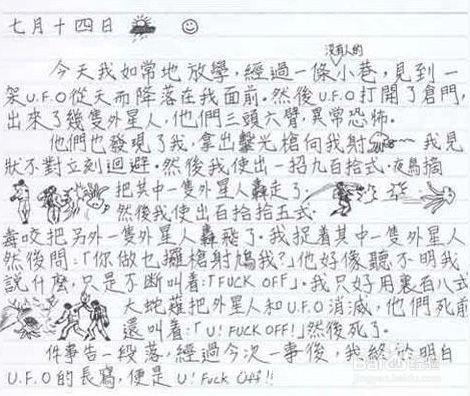 七月十四日
今天我如常地放學,經過一條沒有人的小巷,見到一
架U.F.O從天而降落在我面前.然後U.F.O打開了倉門,
出來了幾隻外星人,他們三頭六臂,異常恐怖.
他們也發現了我,拿出擊光槍向我射 我見
狀不對立刻迴避.然後我使出一招九百拾式.夜鳥摘
把其中一隻外星人轟走了.
然後我使出百拾拾五式.
毒咬把另外一隻外星人轟飛了.我捉着其中一隻外星人
然後問:「你做乜攞槍射鳩我?」他好像聽不明我
說什麼,只是不斷叫着:「FUCK OFF」.我只好用裏百八式
大蛇薙把外星人和U.F.O消滅,他們死前
還叫着:「U! FUCK OFF!」然後死了.
件事告一段落,經過今次一事後,我終於明白
U.F.O的長寫,便是 U! Fuck Off!!
Bai 经验
jingyan.baidu.com